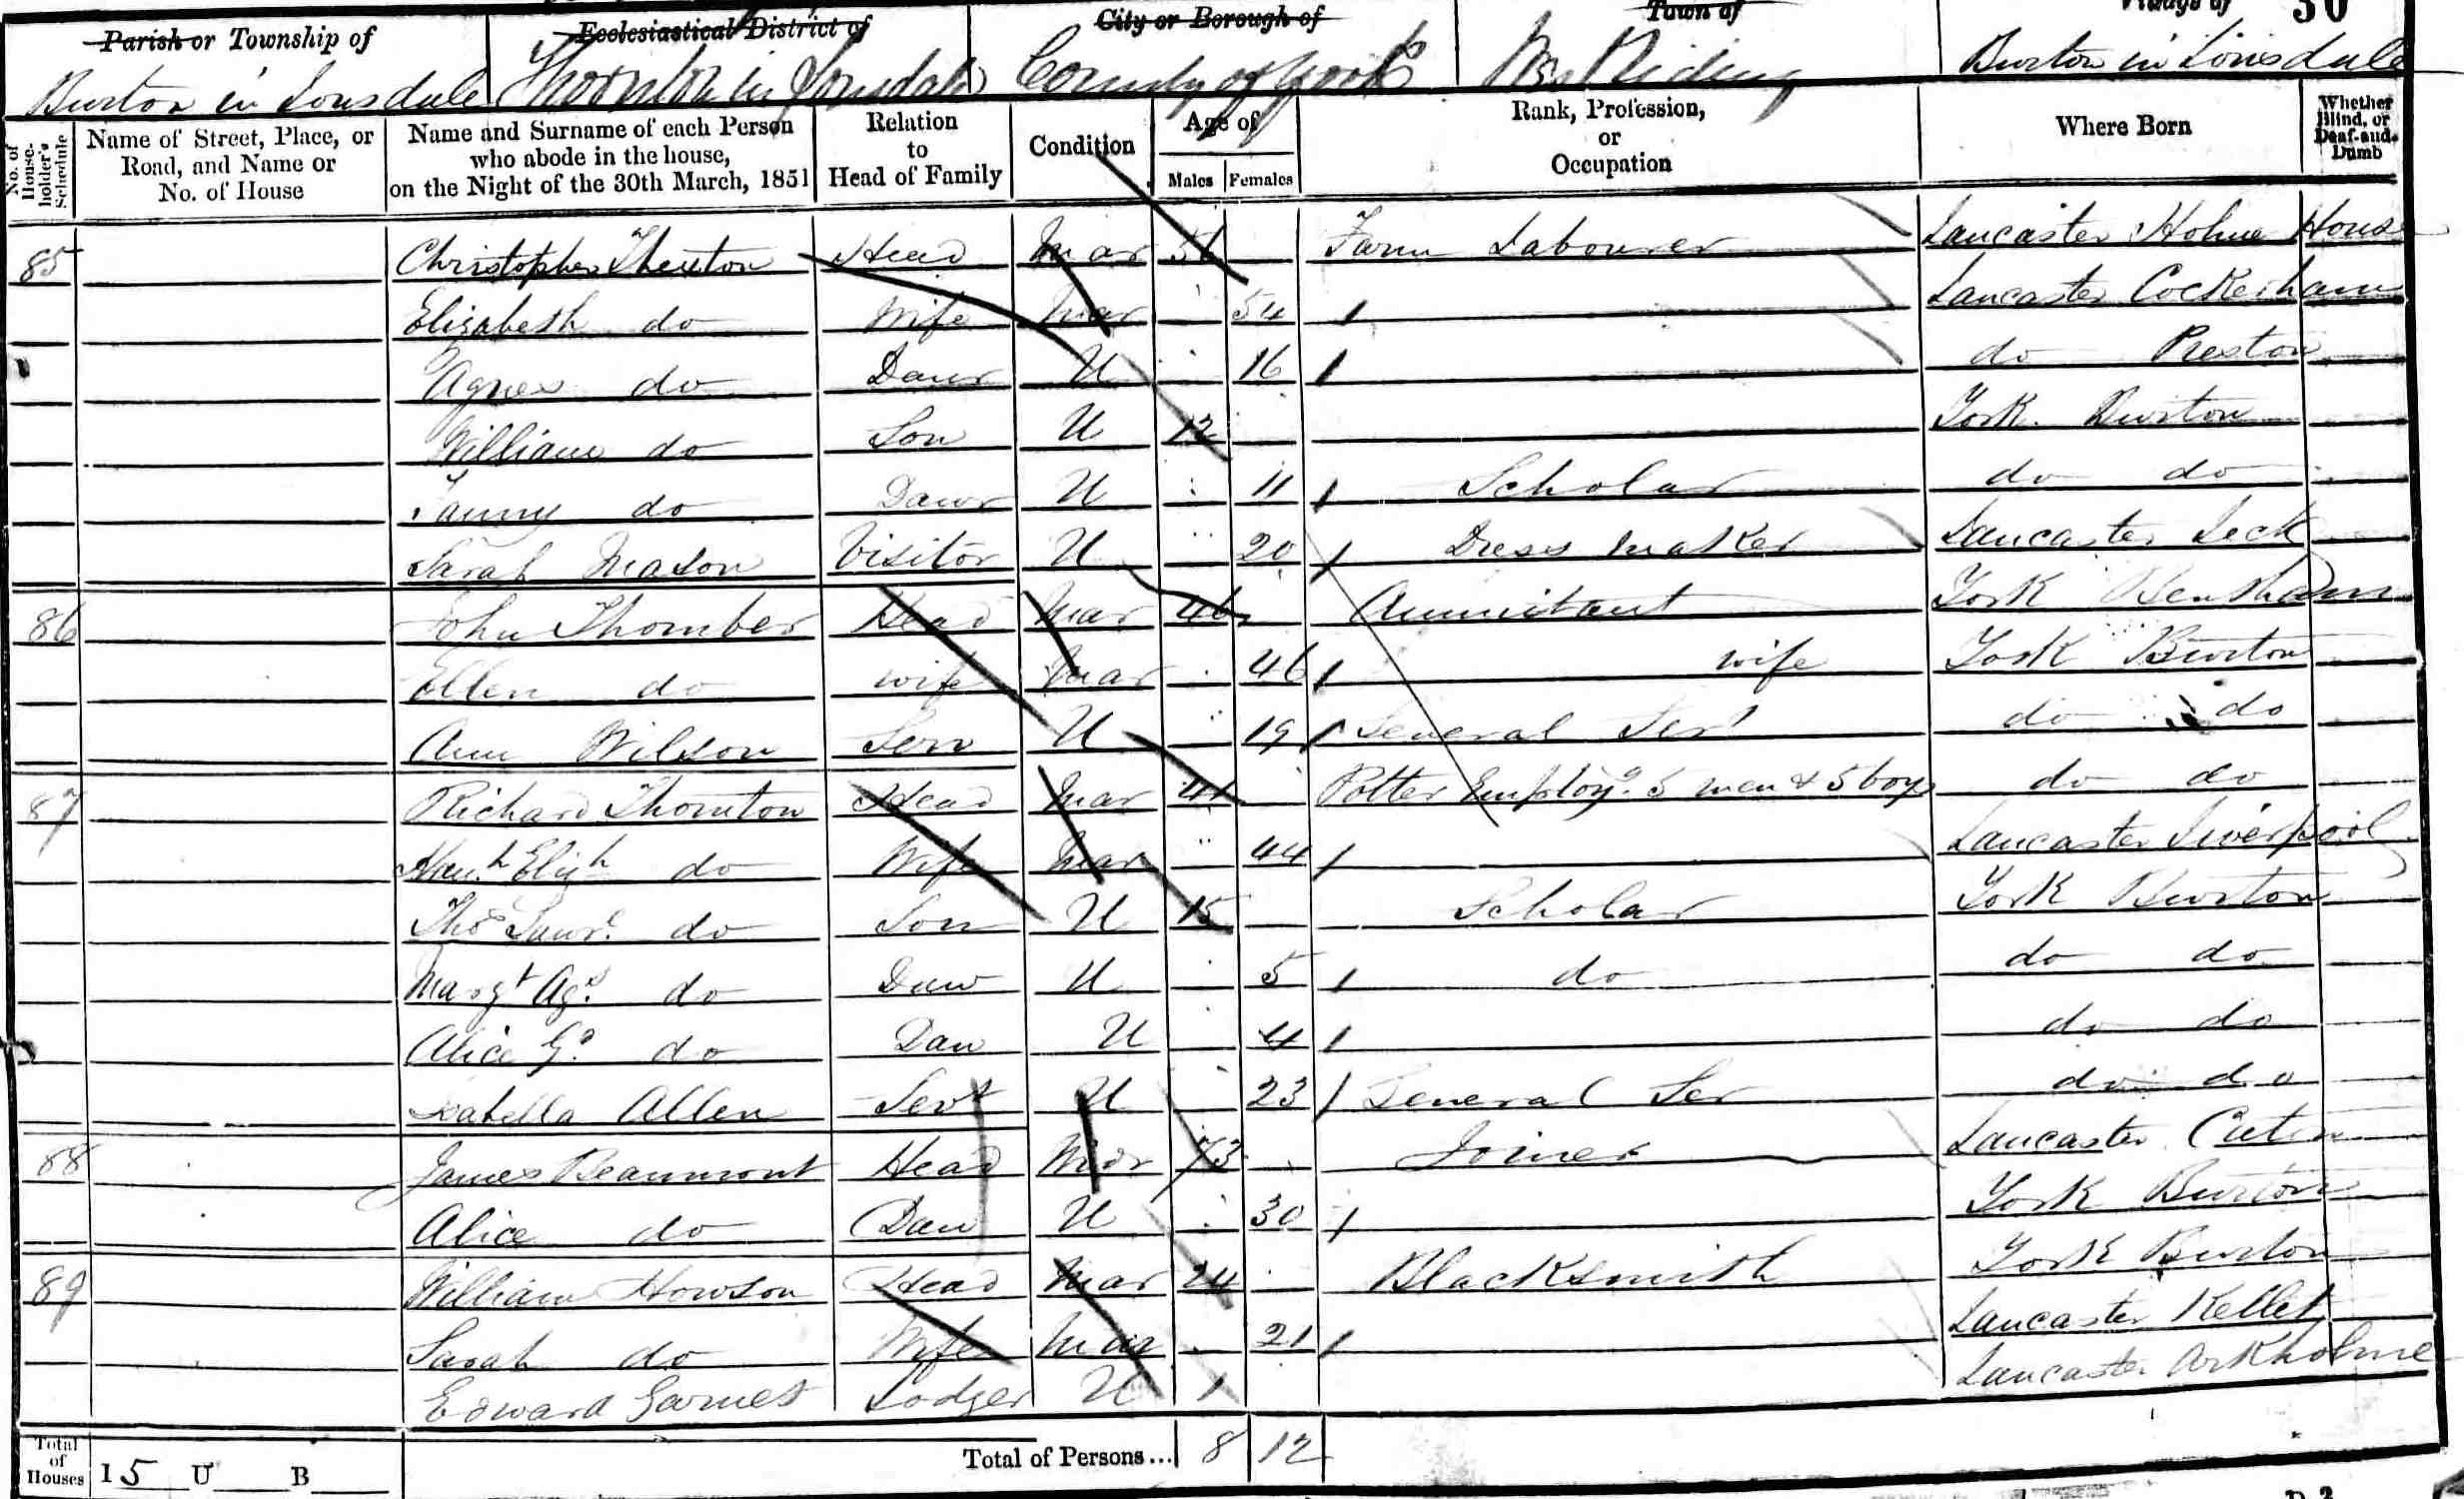 Parish or Township of Ecclesiastical District of City or Borough of Town of Village of 30
Burton in Lonsdale Thornton in Lonsdale County of York Wes Riding Burton in Lonsdale
No. of House-holder's Schedule
Name of Street, Place, or Road, and Name or No. of House
Name and Surname of each Person who abode in the house, on the Night of the 30th March, 1851
Relation to Head of Family
Condition
Age of
Males Females
Rank, Profession, or Occupation
Where Born
Whether Blind, or Deaf-and-Dumb
85 Christopher Head Mar Farm Labourer Lancaster Holme House
Elizabeth do Wife Mar 54 Lancaster Cockerham
Agnes do Daur U 16 do Preston
William do Son U 12 York Burton
Fanny do Dawr U 11 Scholar do do
Sarah Mason Visitor U 20 Dress Maker Lancaster Leck
86 John Thornber Head Mar 46 Annuitant York Bentham
Ellen do wife Mar 46 wife York Burton
Ann Wilson Serv U 19 General Sert do do
87 Richard Thornton Head Mar Potter Employg. 5 men & 5 boys do do
Hanh Elizh do Wife Mar 44 Lancaster Liverpool
Thos Lawr. do Son U 15 Scholar York Burton
Margt Ags. do Daw U 5 do do do
Alice Ga. do Dau U 4 do do
Isabella Allen Servt U 23 General Ser do do
88 James Beaumont Head Widr 73 Joiner Lancaster
Alice do Dau U 30 York Burton
89 William Howson Head Mar 24 Blacksmith York Burton
Sarah do Wife Mar 21 Lancaster Kellet
Edward Garnet Lodger U 1 Lancaster Arkholme
Total of Houses I 5 U B Total of Persons... 8 12